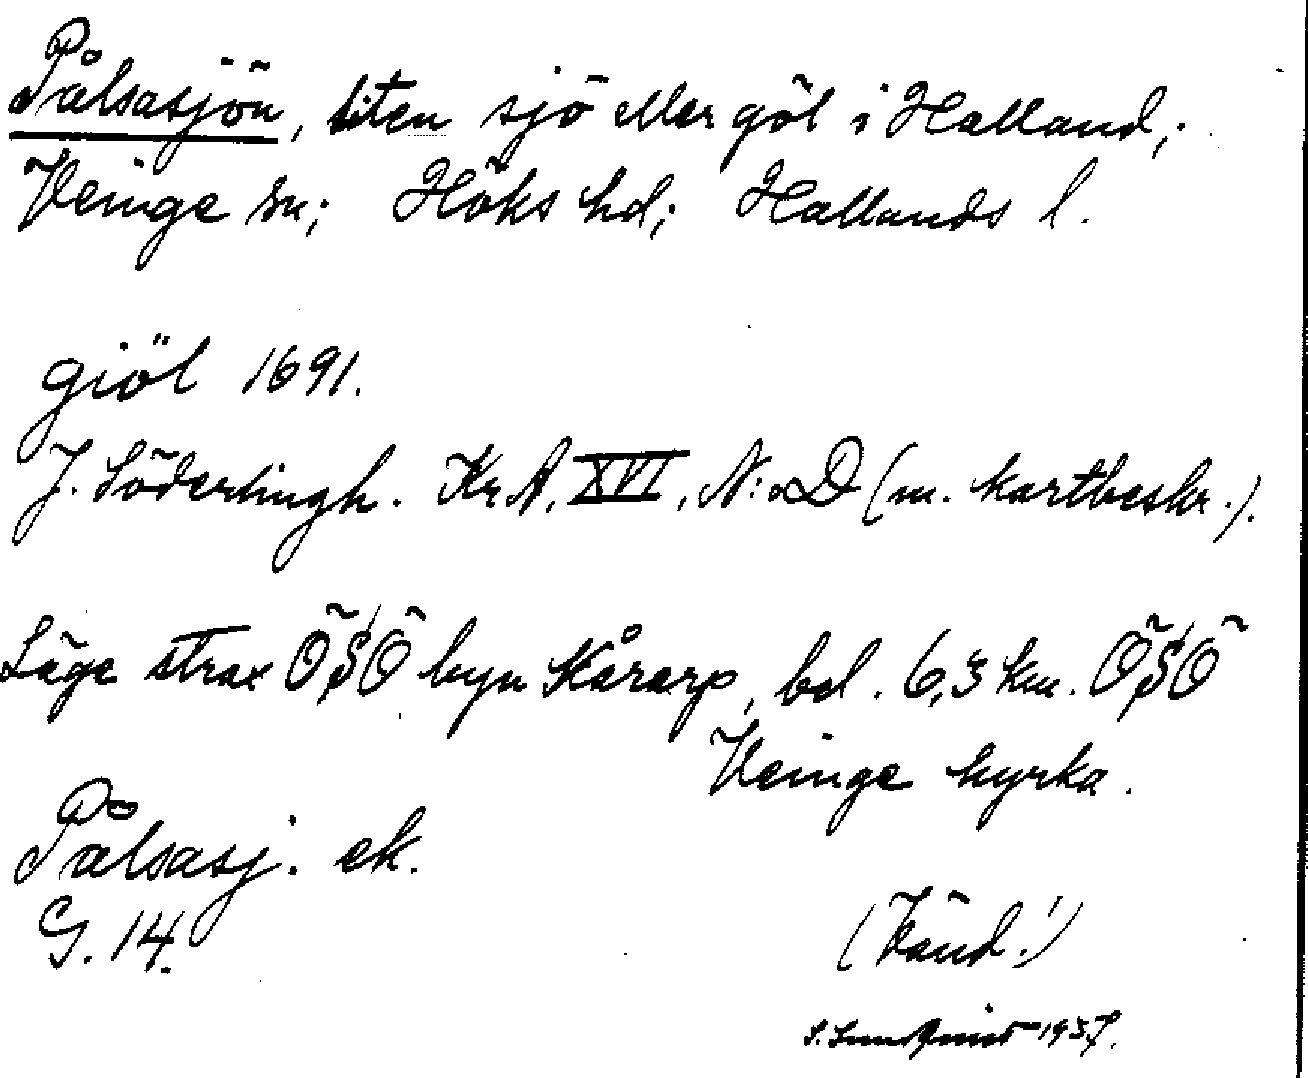 Pålsasjön, liten sjö eller göl i Halland;
Veinge sn; Höks hd; Hallands l.
giöl 1691.
J. Söderlingh. Kr. A. XVI, N:o D (m. kartbeskr.).
Läge strax ÖSÖ byn Kårarp, bel. 6,3 km. ÖSÖ
Veinge kyrka.
Pålsasj. ek.
G. 14.
(Vänd!)
1937.